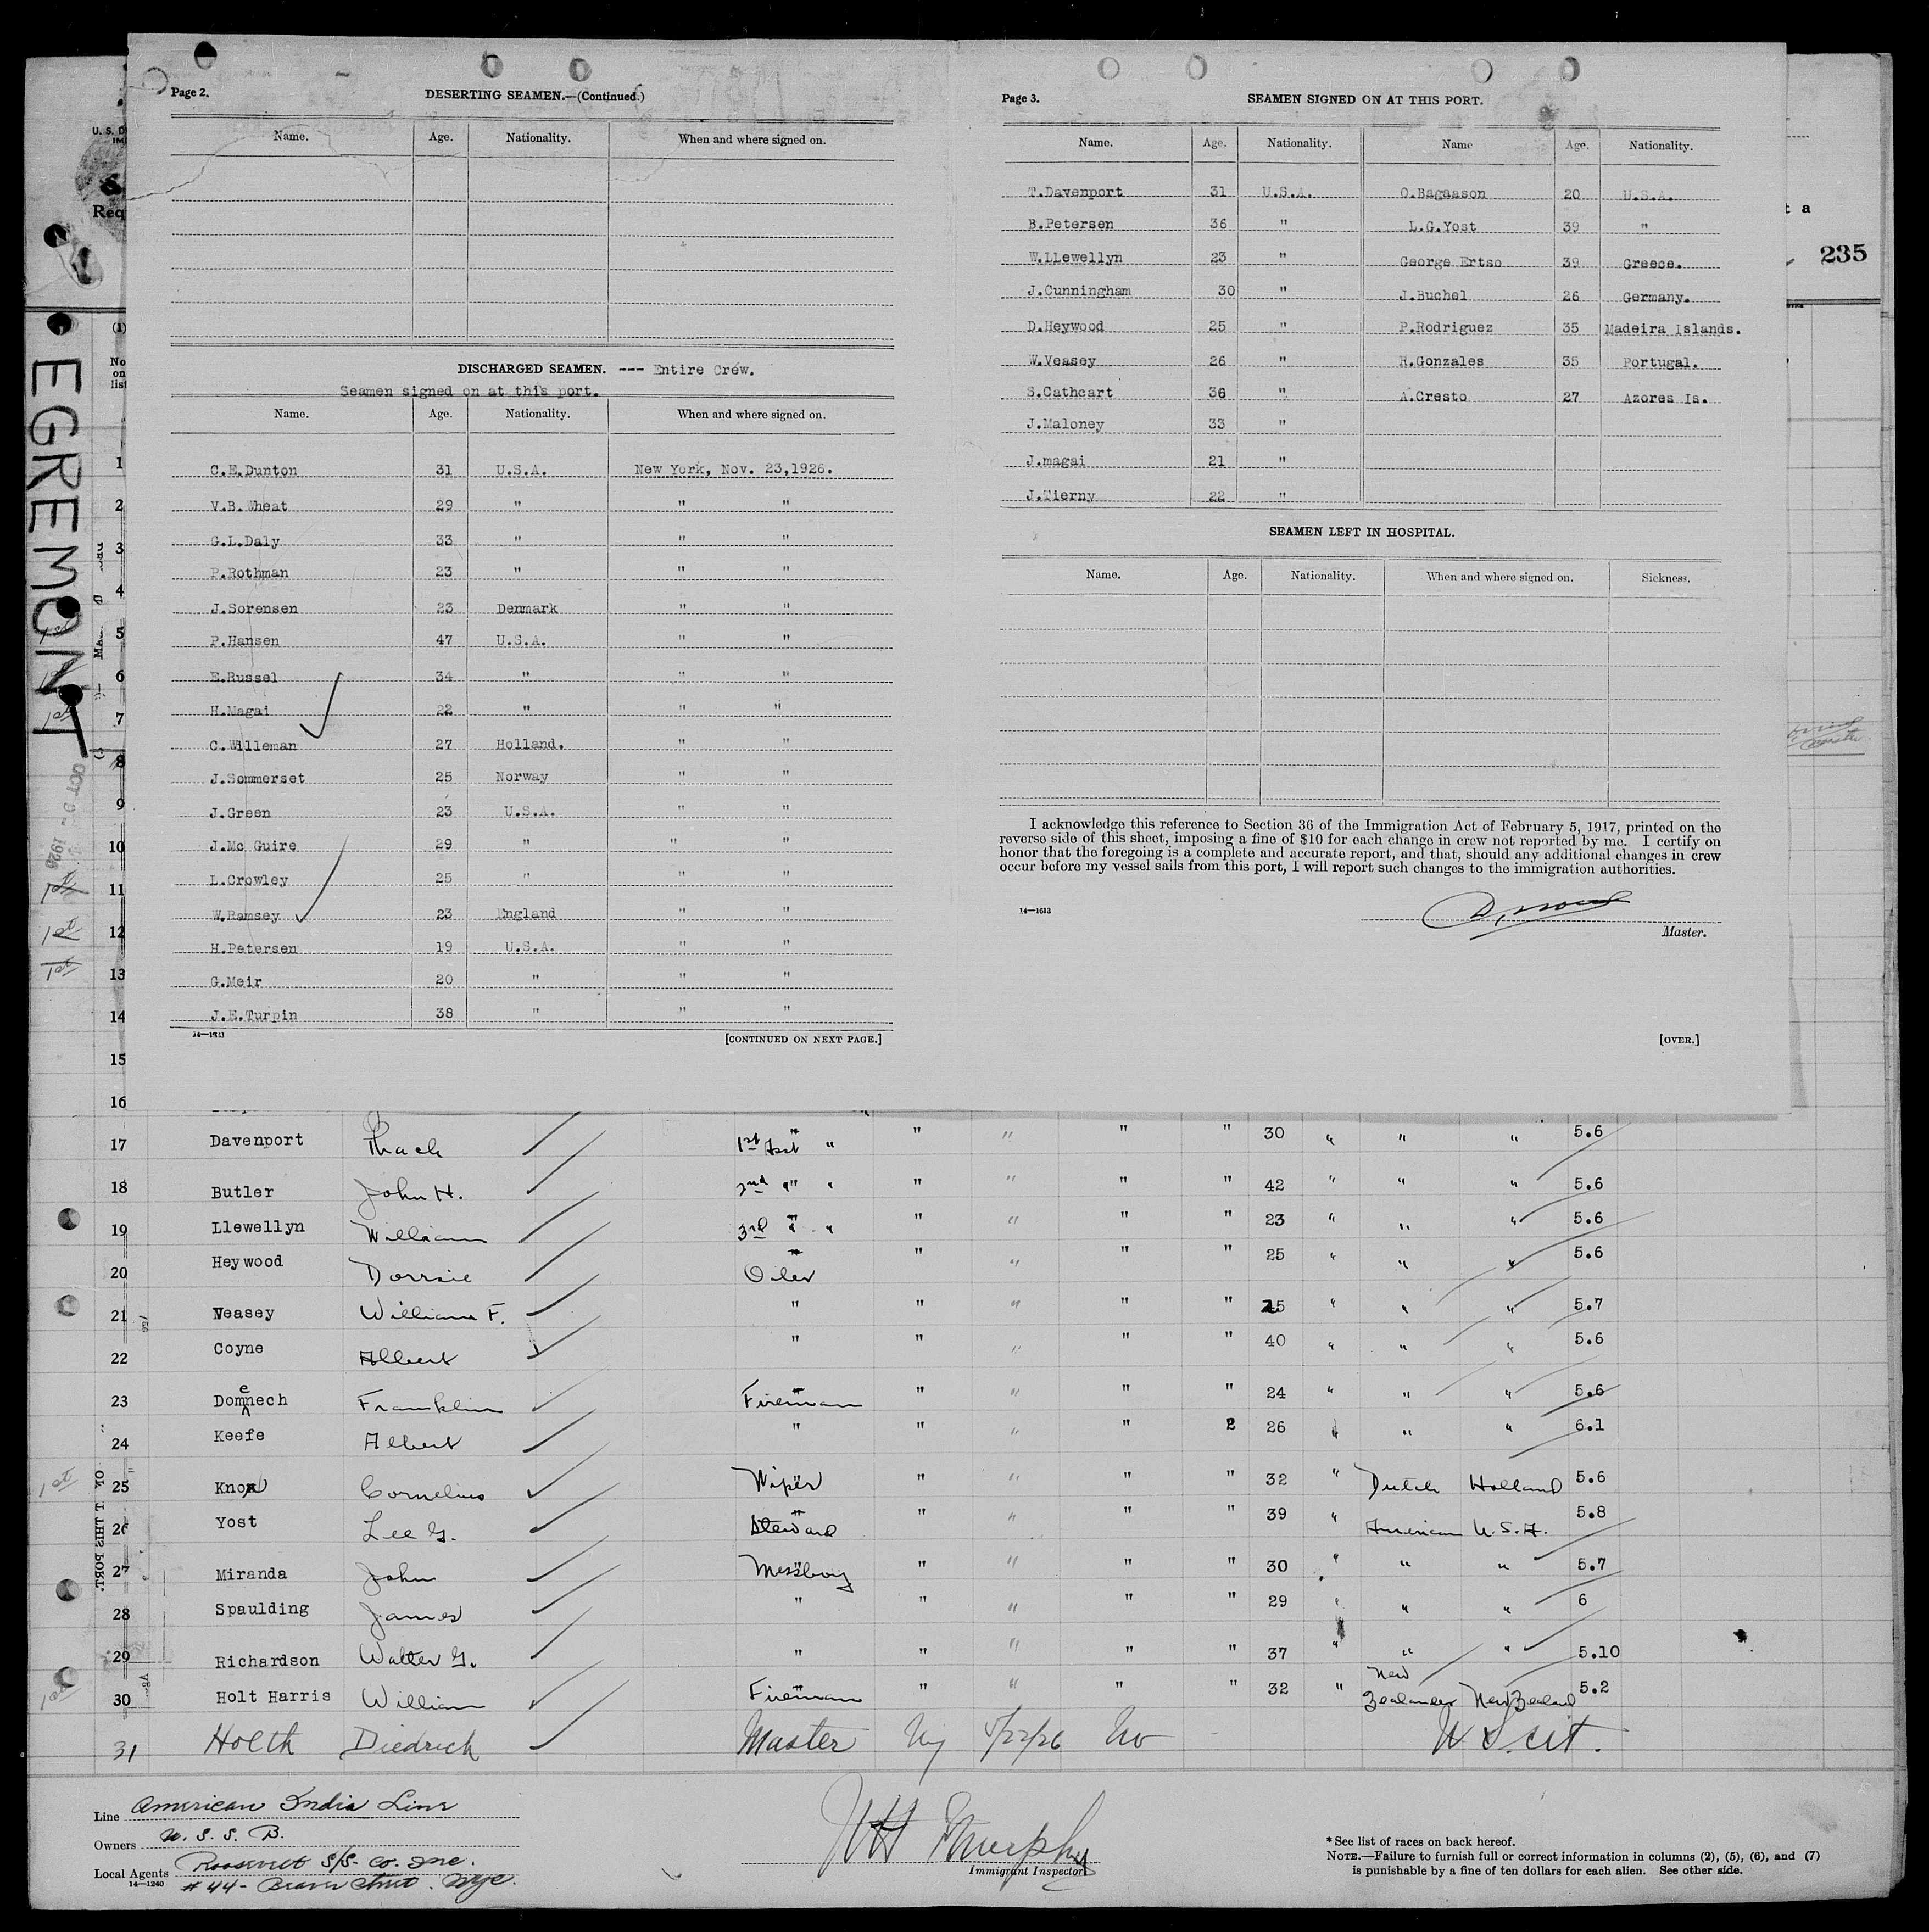 Page 2.
DESERTING SEAMEN.—(Continued.)
Name. Age. Nationality. When and where signed on.
DISCHARGED SEAMEN. --- Entire Crew.
Seamen signed on at this port.
Name. Age. Nationality. When and where signed on.
C.E.Dunton 31 U.S.A. New York, Nov. 23,1926.
V.B.Wheat 29 " " "
G.L.Daly 33 " " "
P.Rothman 23 " " "
J.Sorensen 23 Denmark " "
P.Hansen 47 U.S.A. " "
E.Russel 34 " " "
H.Magai 22 " " "
C.Willeman 27 Holland. " "
J.Sommerset 25 Norway " "
J.Green 23 U.S.A. " "
J.Mc Guire 29 " " "
L.Crowley 25 " " "
W.Ramsey 23 England " "
H.Petersen 19 U.S.A. " "
G.Meir 20 " " "
J.E.Turpin 38 " " "
14—1613
[CONTINUED ON NEXT PAGE.]
Page 3.
SEAMEN SIGNED ON AT THIS PORT.
Name. Age. Nationality. Name Age. Nationality.
T.Davenport 31 U.S.A. O.Bagasson 20 U.S.A.
B.Petersen 36 " L.G.Yost 39 "
W.LLewellyn 23 " George Ertso 39 Greece.
J.Cunningham 30 " J.Buchel 26 Germany.
D.Heywood 25 " P.Rodriguez 35 Madeira Islands.
W.Veasey 26 " R.Gonzales 35 Portugal.
S.Cathcart 36 " A.Cresto 27 Azores Is.
J.Maloney 33 "
J.magai 21 "
J.Tierny 22 "
SEAMEN LEFT IN HOSPITAL.
Name. Age. Nationality. When and where signed on. Sickness.
I acknowledge this reference to Section 36 of the Immigration Act of February 5, 1917, printed on the
reverse side of this sheet, imposing a fine of $10 for each change in crew not reported by me. I certify on
honor that the foregoing is a complete and accurate report, and that, should any additional changes in crew
occur before my vessel sails from this port, I will report such changes to the immigration authorities.
14—1613
Master.
[OVER.]
235
EGREMONT
(1)
No
on
list
1
2
3
4
5
6
7
8
9
10
11
12
13
14
15
16
17 Davenport Thach 1st Asst " " " " " 30 " " " 5.6
18 Butler John H. 2nd " " " " " " 42 " " " 5.6
19 Llewellyn William 3rd " " " " " " 23 " " " 5.6
20 Heywood Dorrsie Oiler " " " " 25 " " " 5.6
21 Veasey William F. " " " " " 25 " " " 5.7
22 Coyne Albert " " " " " 40 " " " 5.6
23 Domenech Franklin Fireman " " " " 24 " " " 5.6
24 Keefe Albert " " " " 2 26 " " " 6.1
25 Knox Cornelius Wiper " " " " 32 " Dutch Holland 5.6
26 Yost Lee G. Steward " " " " 39 " American U.S.A. 5.8
27 Miranda John Messboy " " " " 30 " " " 5.7
28 Spaulding James " " " " " 29 " " " 6
29 Richardson Walter G. " " " " " 37 " " " 5.10
30 Holt Harris William Fireman " " " " 32 " New Zealander New Zealand 5.2
31 Holth Diedrich Master Ny 5/22/26 No - U S cit.
Line American India Line
Owners U. S. S. B.
Local Agents Roosevelt S/S. Co. Inc.
14—1240 #44- Beaver Street. Nyc.
Murphy
Immigrant Inspector
* See list of races on back hereof.
NOTE.—Failure to furnish full or correct information in columns (2), (5), (6), and (7)
is punishable by a fine of ten dollars for each alien. See other side.